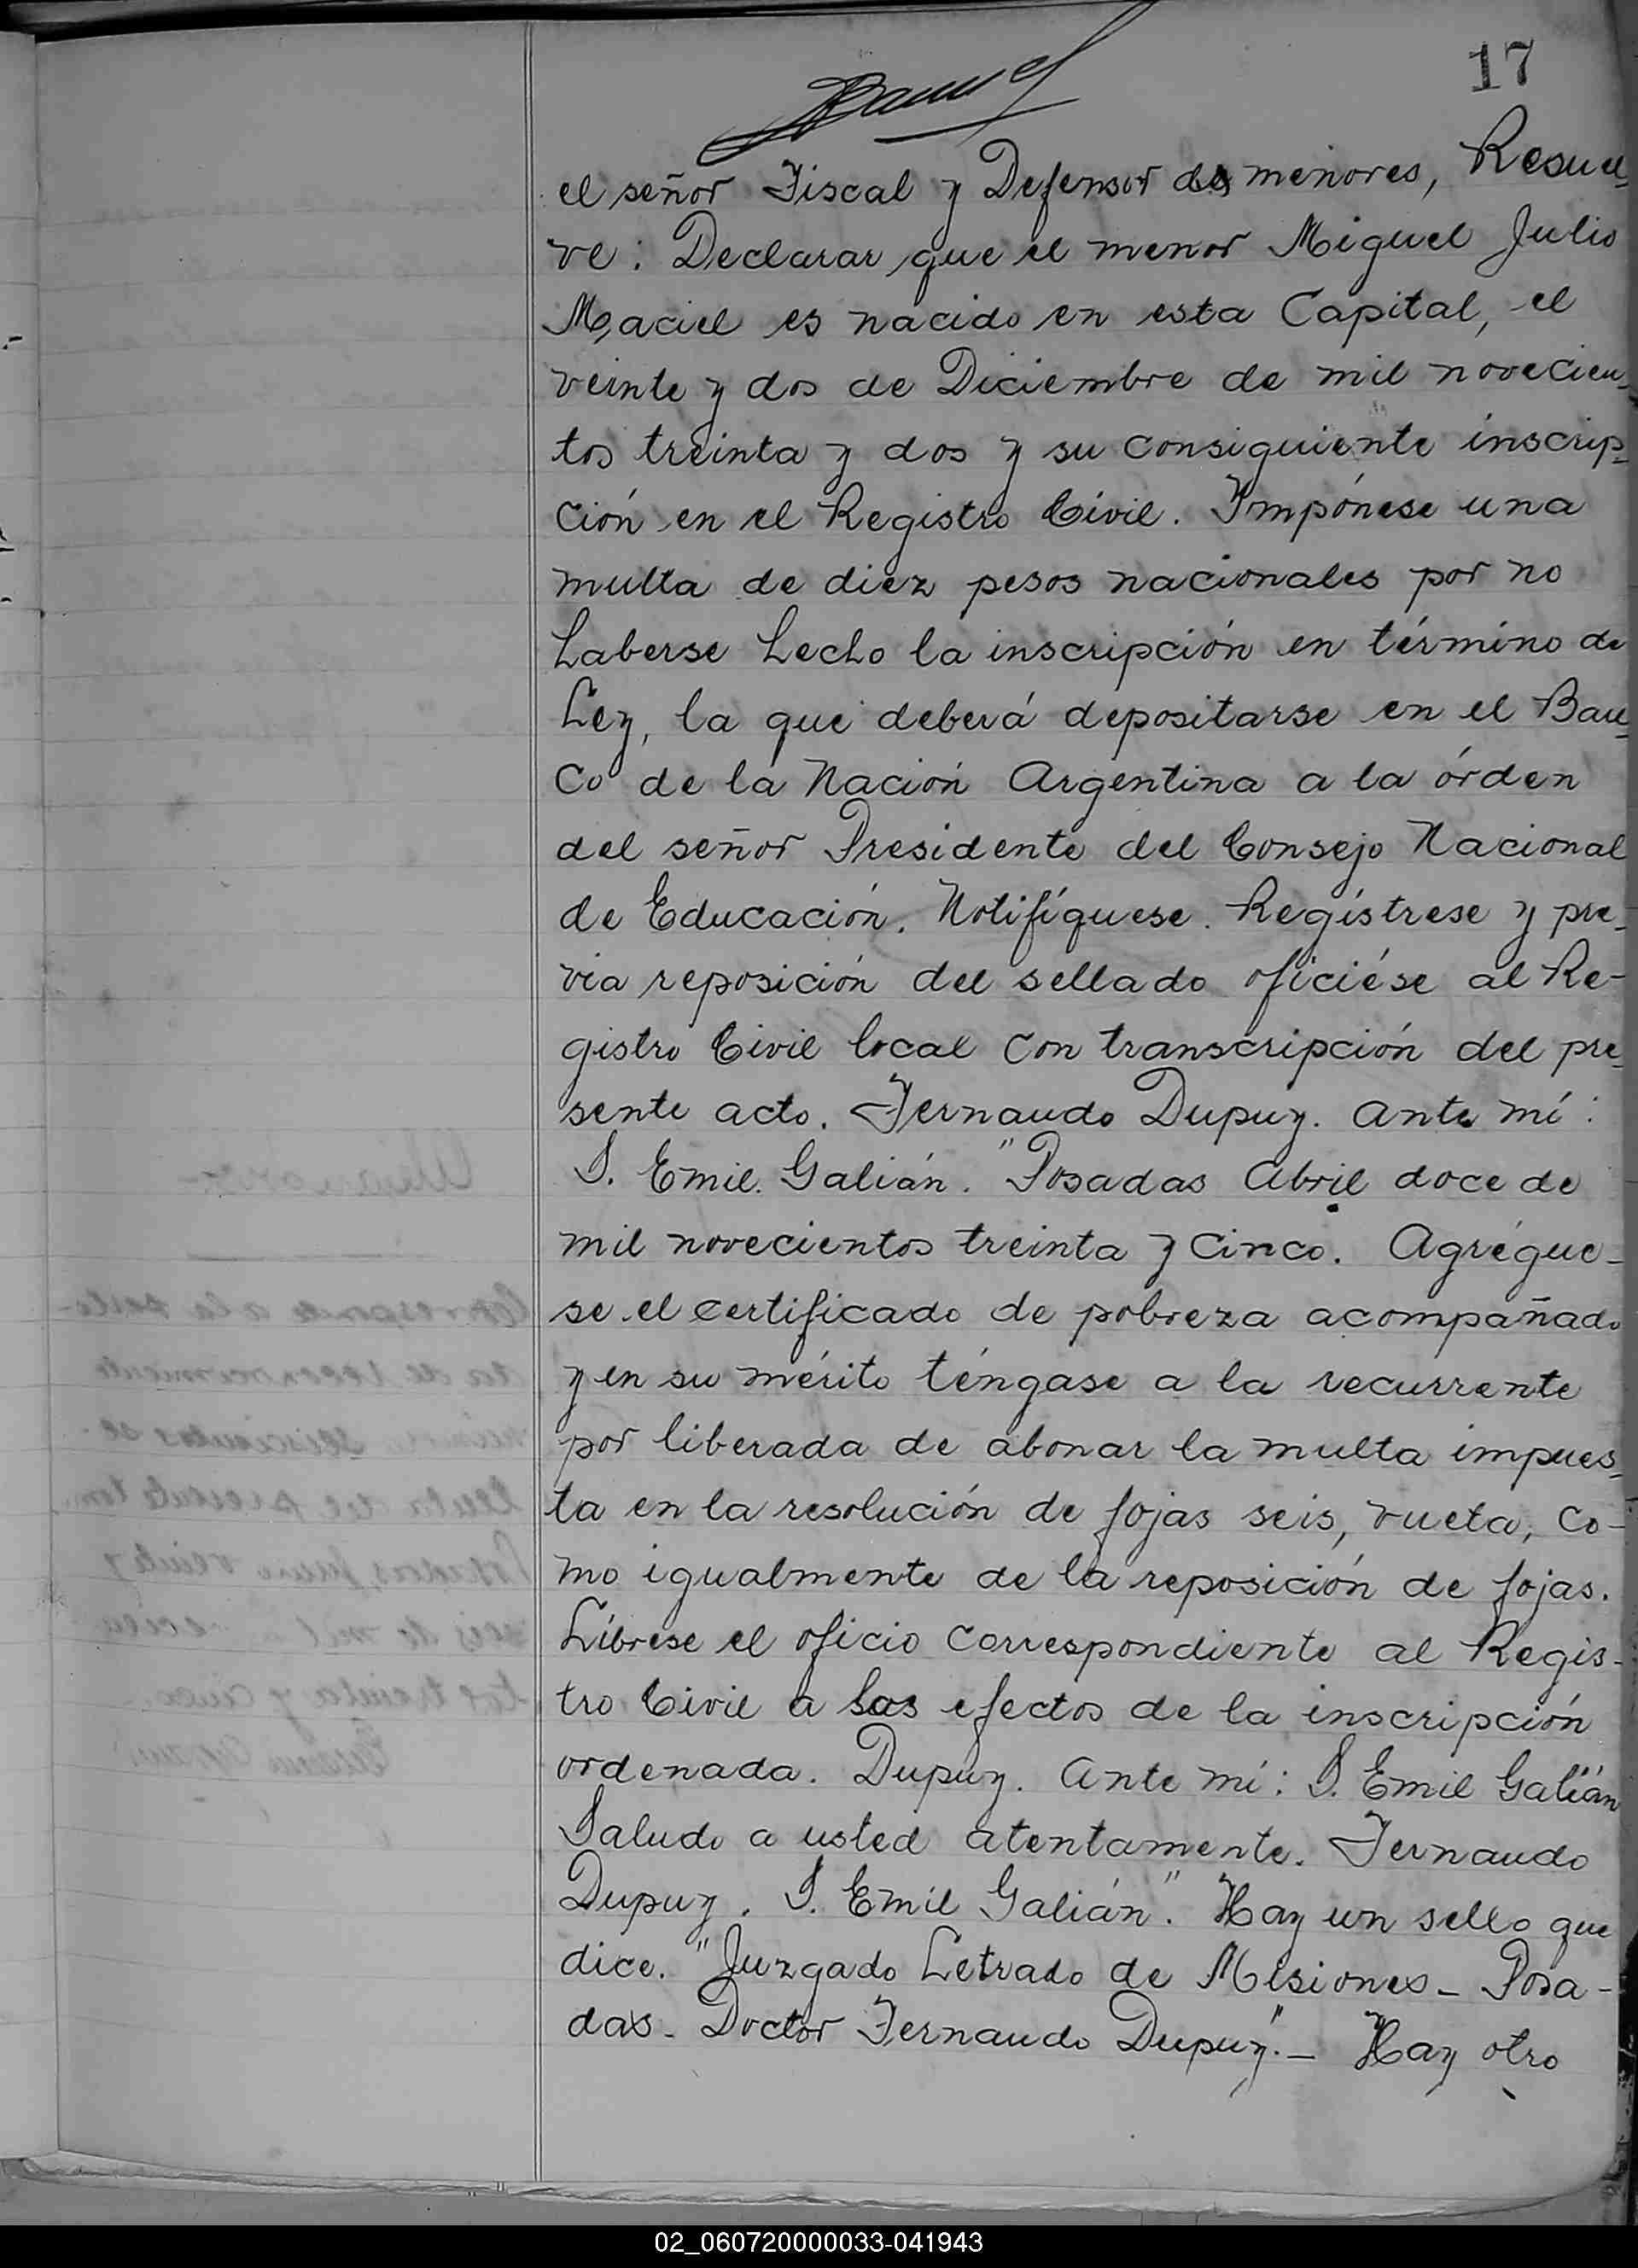 17
el señor Fiscal y Defensor de menores, Resuel-
ve: Declarar que el menor Miguel Julio
Maciel es nacido en esta Capital, el
veinte y dos de Diciembre de mil novecien-
tos treinta y dos y su consiguiente inscrip-
ción en el Registro Civil. Impónese una
multa de diez pesos nacionales por no
haberse hecho la inscripción en término de
Ley, la que deberá depositarse en el Ban-
co de la Nación Argentina a la órden
del señor Presidente del Consejo Nacional
de Educación. Notifíquese. Regístrese y pre-
via reposición del sellado oficiése al Re-
gistro Civil local con transcripción del pre-
sente acto. Fernando Dupuy. Ante mí:
S. Emil. Galián. "Posadas Abril doce de
mil novecientos treinta y cinco. Agrégue-
se el certificado de pobreza acompañado
y en su mérito téngase a la recurrente
por liberada de abonar la multa impues-
ta en la resolución de fojas seis, vueta, co-
mo igualmente de la reposición de fojas.
Líbrese el oficio correspondiente al Regis-
tro Civil a los efectos de la inscripción
ordenada. Dupuy. Ante mí: S. Emil Galián"
Saludo a usted atentamente. Fernando
Dupuy. S. Emil Galián". Hay un sello que
dice. "Juzgado Letrado de Misiones - Posa-
das - Doctor Fernando Dupuy".- Hay otro
02_060720000033-041943